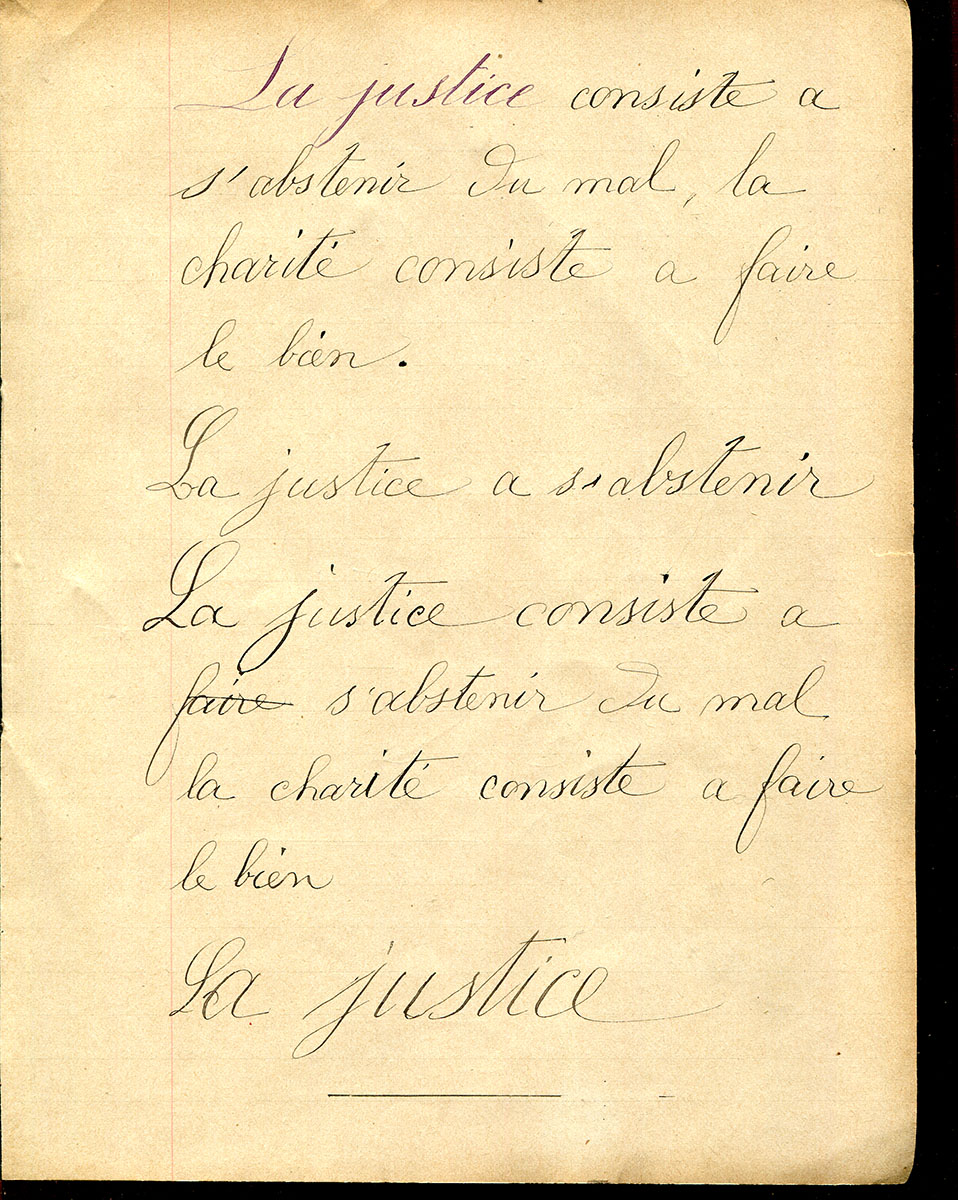 La justice consiste a
s'abstenir du mal, la
charité consiste a faire
le bien.
La justice a s'abstenir
La justice consiste a
faire s'abstenir du mal
la charité consiste a faire
le bien
La justice